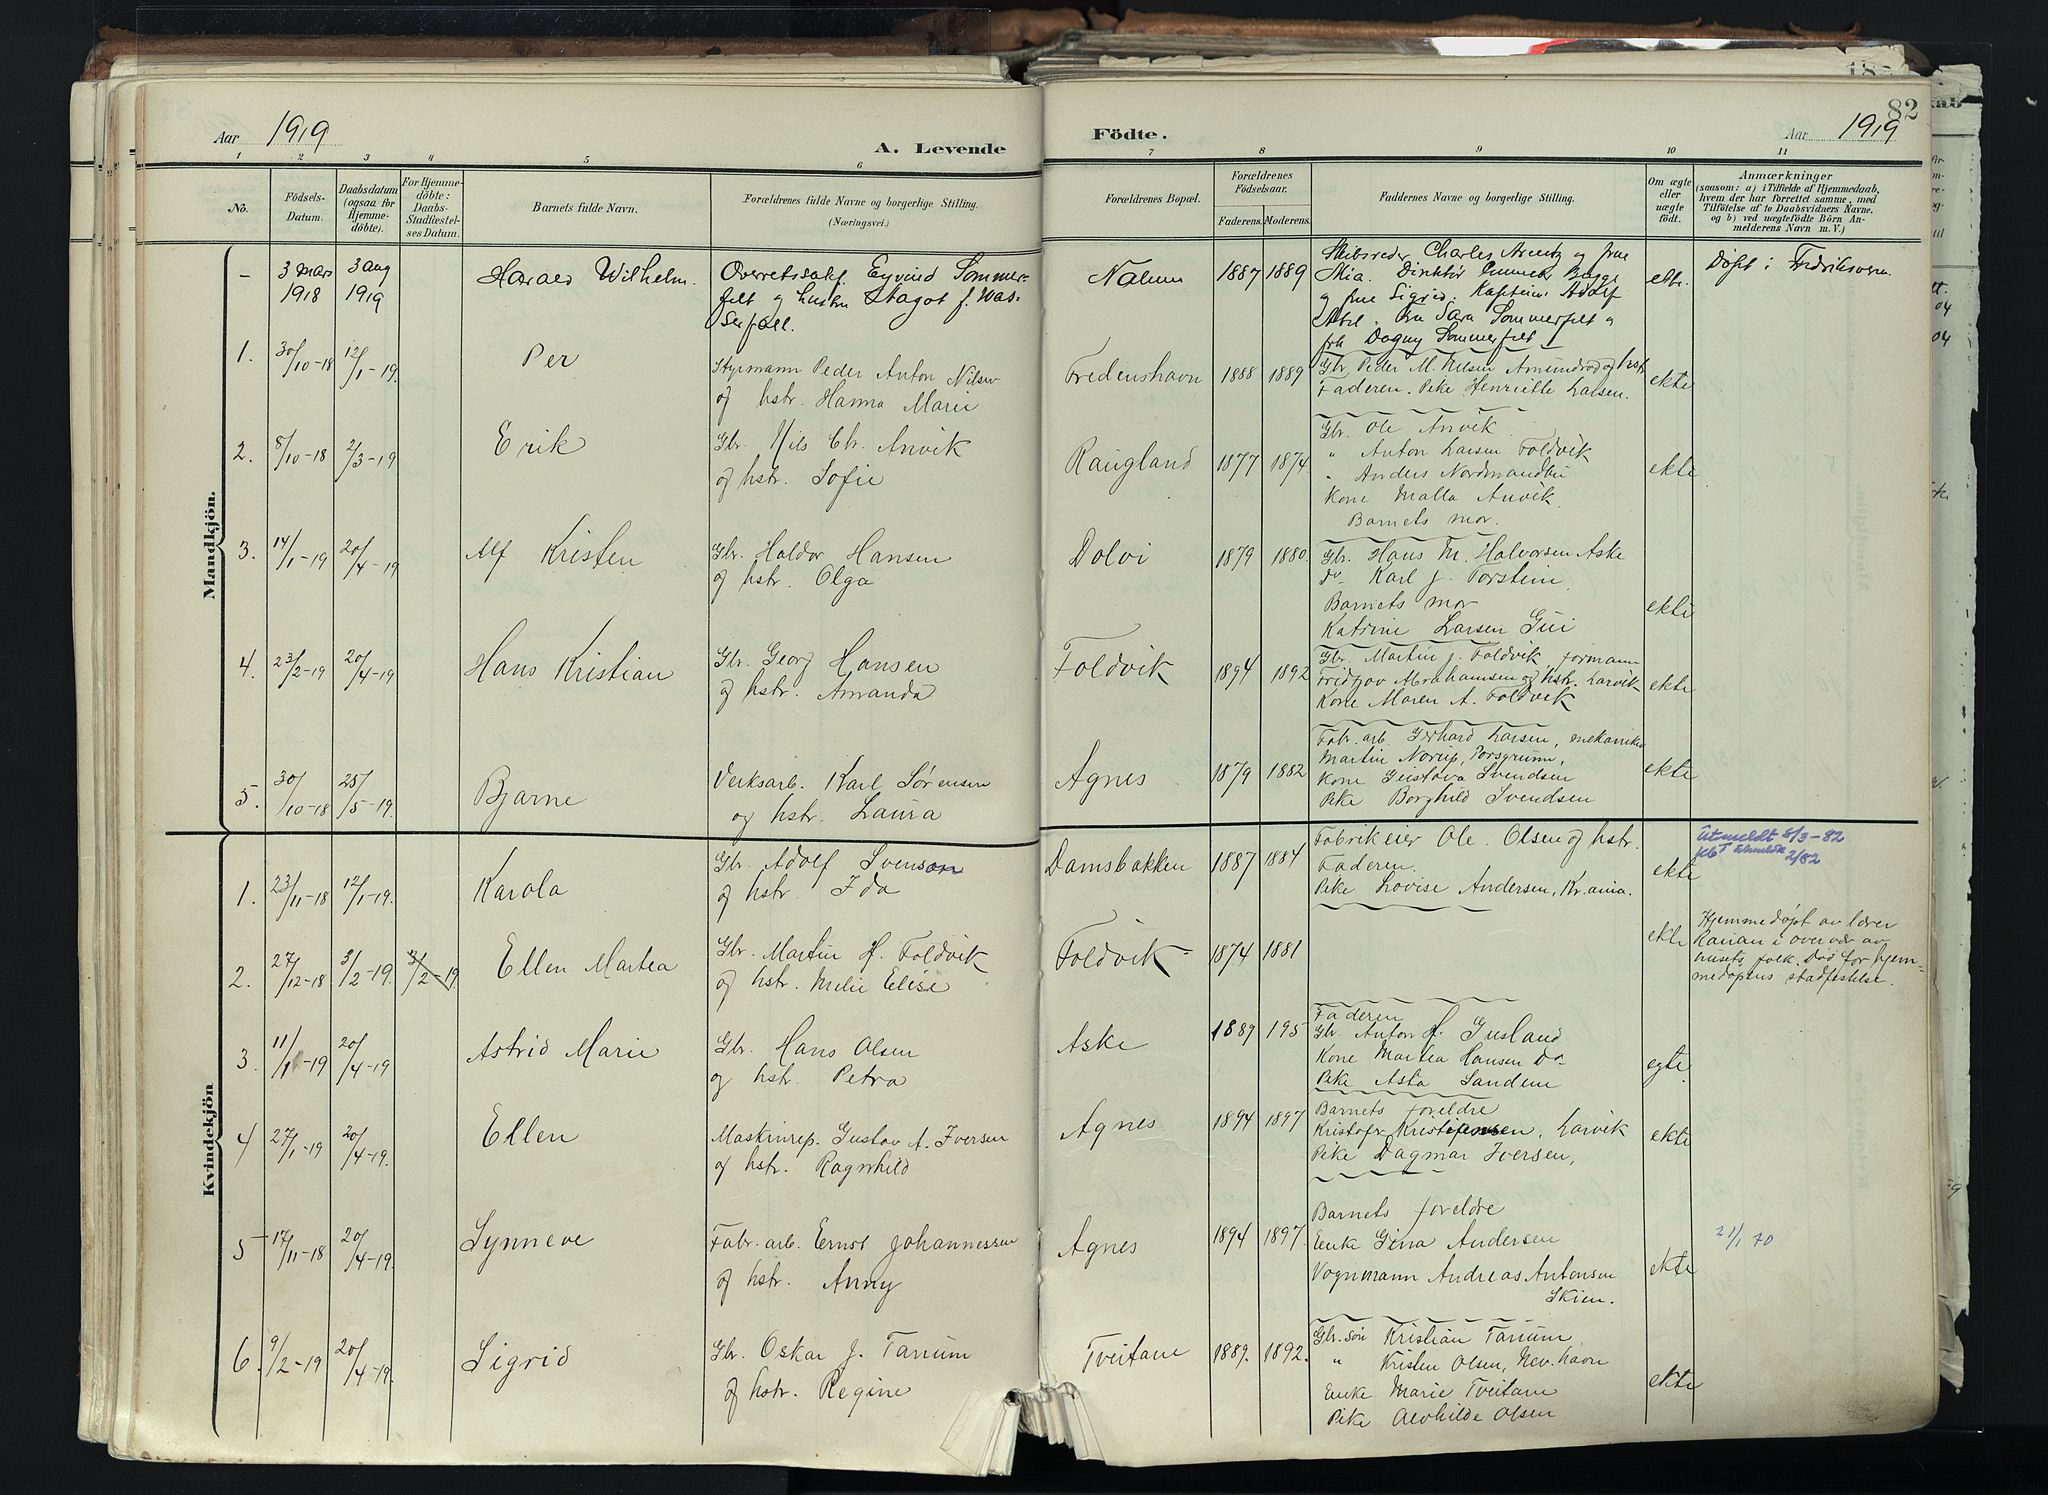 82
Aar 1919
A. Levende
Födte.
Aar 1919
1 2 3 4 5 6 7 8 9 10 11
No.
Födsels-
Datum.
Daabsdatum
(ogsaa for
Hjemme-
döbte).
For Hjemme-
döbte:
Daabs-
Stadfestel-
ses Datum.
Barnets fulde Navn.
Forældrenes fulde Navne og borgerlige Stilling.
(Næringsvei.)
Forældrenes Bopæl.
Forældrenes
Födselsaar.
Faderens. Moderens.
Faddernes Navne og borgerlige Stilling.
Om ægte
eller
uægte
födt.
Anmærkninger
(saasom: a) i Tilfælde af Hjemmedaab,
hvem der har forrettet samme, med
Tilföielse af to Daabsvidners Navne,
og b) ved uægtefödte Börn An-
melderens Navn m. V.)
Mandkjön.
- 3 mars 1918
3 aug 1919
Harald Wilhelm.
Overretssakf. Eyvind Sommer-
felt og hustru Magot f. Was-
serfall.
Nalum 1887 1889
Skibsreder Charles Arentz og frue
Mia. Direktör Bugge
og frue Sigrid. Kaptein Adolf
Sara Sommerfelt og
frk Dagny Sommerfelt
ektr.
Döpt i Fredriksvern.
1. 30/10-18 12/1-19. Per
Styrmann Peder Anton Nilsen
og hstr. Hanna Marie
Fredenshavn 1888 1889
Gbr. Peder M. Nilsen Amundrød og hstr.
Faderen. Pike Henriette Larsen.
ekte
2. 8/10-18 2/3-19 Erik
Gbr. Nils Chr. Anvik
og hstr. Sofie
Raugland 1877 1874
Gbr. Ole Anvik
" Anton Larsen Foldvik
" Anders Nordmandbu
Kone Malla Anvik.
Barnets mor.
ekte
3. 14/1-19 20/4-19 Alf Kristen
Gbr. Haldor Hansen
og hstr. Olga
Dolvi 1879 1880.
Gbr. Hans M. Halvorsen Aske
Do Karl J. Torstein
Barnets mor
Katrine Larsen Gui
ekte
4. 23/2-19 20/4-19 Hans Kristian
Gbr. Georg Hansen
og hstr. Amanda
Foldvik 1894 1892
Gbr. Martin J. Foldvik, formann
Fridtjov Abrahamsen og hstr. Larvik
Kone Maren A. Foldvik
ekte
5. 30/10-18 25/5-19. Bjarne
Verksarb. Karl Sørensen
og hstr. Laura
Agnes 1879 1882
Fabr. arb. Gerhard Larsen, mekaniker
Martin Norup, Porsgrunn,
Kone Gustava Svendsen
Pike Borghild Svendsen
ekte
Kvindekjön
1. 23/11-18 12/1-19. Karola
Gbr. Adolf Svenson
og hstr. Ida
Damsbakken 1887 1884
Fabrikeier Ole Olsen og hstr.
Faderen.
Pike Lovise Andersen, Kr.ania.
ekte
Utmeldt 8/3-82
2/82
2. 27/12-18 3/2-19. 3/2-19 Ellen Martea
Gbr. Martin H. Foldvik
og hstr. Milie Elise
Foldvik 1874 1881
ekte
Hjemmedöpt av lærer
Ranan i overvær av
husets folk. Död för hjem-
medöpens stadfestelse.
3. 11/1-19 20/4-19 Astrid Marie
Gbr. Hans Olsen
og hstr. Petra
Aske 1889 195
Faderen
Gbr. Anton H. Gusland
Kone Martea Hansen Do
Pike Asta Sanden
egte.
4 27/1-19 20/4-19. Ellen
Maskinrep. Gustav A. Iversen
og hstr. Ragnhild
Agnes 1894 1897
Barnets foreldre
Kristofr Kristiansen, Larvik
Pike Dagmar Iversen,
ekte
5 17/11-18 20/4-19. Synneve
Fabr. arb. Ernst Johannessen
og hstr. Anny
Agnes 1894 1897.
Barnets foreldre
Enke Gina Andersen
Vognmann Andreas Antonsen
Skien.
ekte
21/1 70
6. 9/2-19 20/4-19. Sigrid
Gbr. Oskar J. Tanum
og hstr. Regine
Tveitane 1889. 1892.
Gbr. søn Kristian Tanum
" Kristen Olsen, Nev.havn
Enke Marie Tveitane
Pike Alvhilde Olsen
ekte